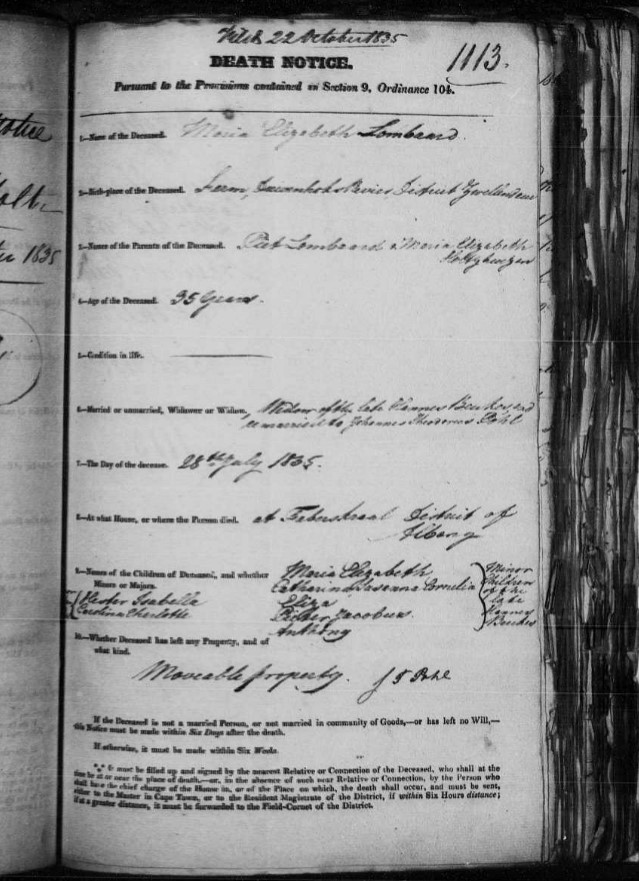 Filed 22 October 1835
1113.
DEATH NOTICE.
Pursuant to the Provisions contained in Section 9, Ordinance 104.
1.—Name of the Deceased. Maria Elizabeth Lombaard.
2.—Birth-place of the Deceased. Farm, Rivier District Zwellendam
3.—Names of the Parents of the Deceased. Piet Lombaard & Maria Elizabeth
Holtzhuizen
4.—Age of the Deceased. 35 Years.
5.—Condition in life.
6.—Married or unmarried, Widower or Widow. Widow of the late Hannes Beukes, and
remarried to Johannes Theodorus Pohl
7.—The Day of the decease. 28th July 1835.
8.—At what House, or where the Person died. at District of
Albany
9.—Names of the Children of Deceased, and whether
Minors or Majors.
Maria Elizabeth
Catharina Susanna Cornelia
Eliza
Jacobus
Anthony
Minor
Children
of the
late
Hannes
Beukes
Hester Isabella
Carolina Charlotte
10.—Whether Deceased has left any Property, and of
what kind.
Moveable property.
If the Deceased is not a married Person, or not married in community of Goods,—or has left no Will,—
this Notice must be made within Six Days after the death.
If otherwise, it must be made within Six Weeks.
*** It must be filled up and signed by the nearest Relative or Connection of the Deceased, who shall at the
time be at or near the place of death,—or, in the absence of such near Relative or Connection, by the Person who
shall have the chief charge of the House in, or of the Place on which, the death shall occur, and must be sent,
either to the Master in Cape Town, or to the Resident Magistrate of the District, if within Six Hours distance;
if at a greater distance, it must be forwarded to the Field-Cornet of the District.